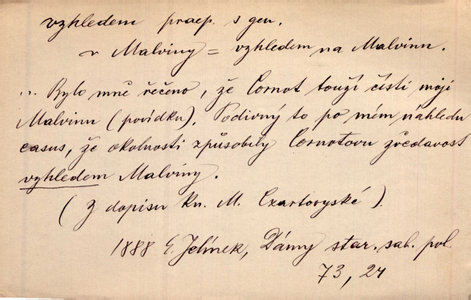 vzhledem praep. s gen.
v Malviny = vzhledem na Malvinu.
... Bylo mně řečeno, že Cornot touží čísti moji
Malvinu (povídku). Podivný to po mém náhledu
casus, že okolnosti způsobily Cornotovu zvědavost
vzhledem Malviny.
(Z dopisu kn. M. Czartoryské).
1888 E Jelínek, Dámy star. sal. pol.
73, 24